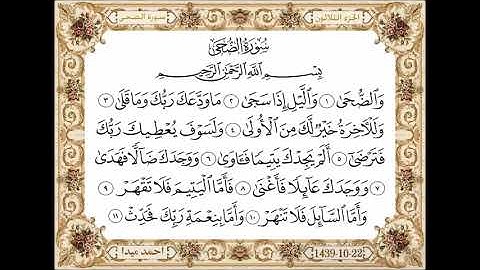 الجزء الثلاثون
سورة الضحى
سُورَةُ الضُّحَىٰ
بِسْمِ اللَّهِ الرَّحْمَٰنِ الرَّحِيمِ
وَالضُّحَىٰ ١ وَالَّيْلِ إِذَا سَجَىٰ ٢ مَا وَدَّعَكَ رَبُّكَ وَمَا قَلَىٰ ٣
وَلَلْآخِرَةُ خَيْرٌ لَّكَ مِنَ الْأُولَىٰ ٤ وَلَسَوْفَ يُعْطِيكَ رَبُّكَ
فَتَرْضَىٰ ٥ أَلَمْ يَجِدْكَ يَتِيمًا فَـَٔاوَىٰ ٦ وَوَجَدَكَ ضَالًّا فَهَدَىٰ
٧ وَوَجَدَكَ عَائِلًا فَأَغْنَىٰ ٨ فَأَمَّا الْيَتِيمَ فَلَا تَقْهَرْ ٩
وَأَمَّا السَّائِلَ فَلَا تَنْهَرْ ١٠ وَأَمَّا بِنِعْمَةِ رَبِّكَ فَحَدِّثْ ١١
احمد ميدا
1439-10-22